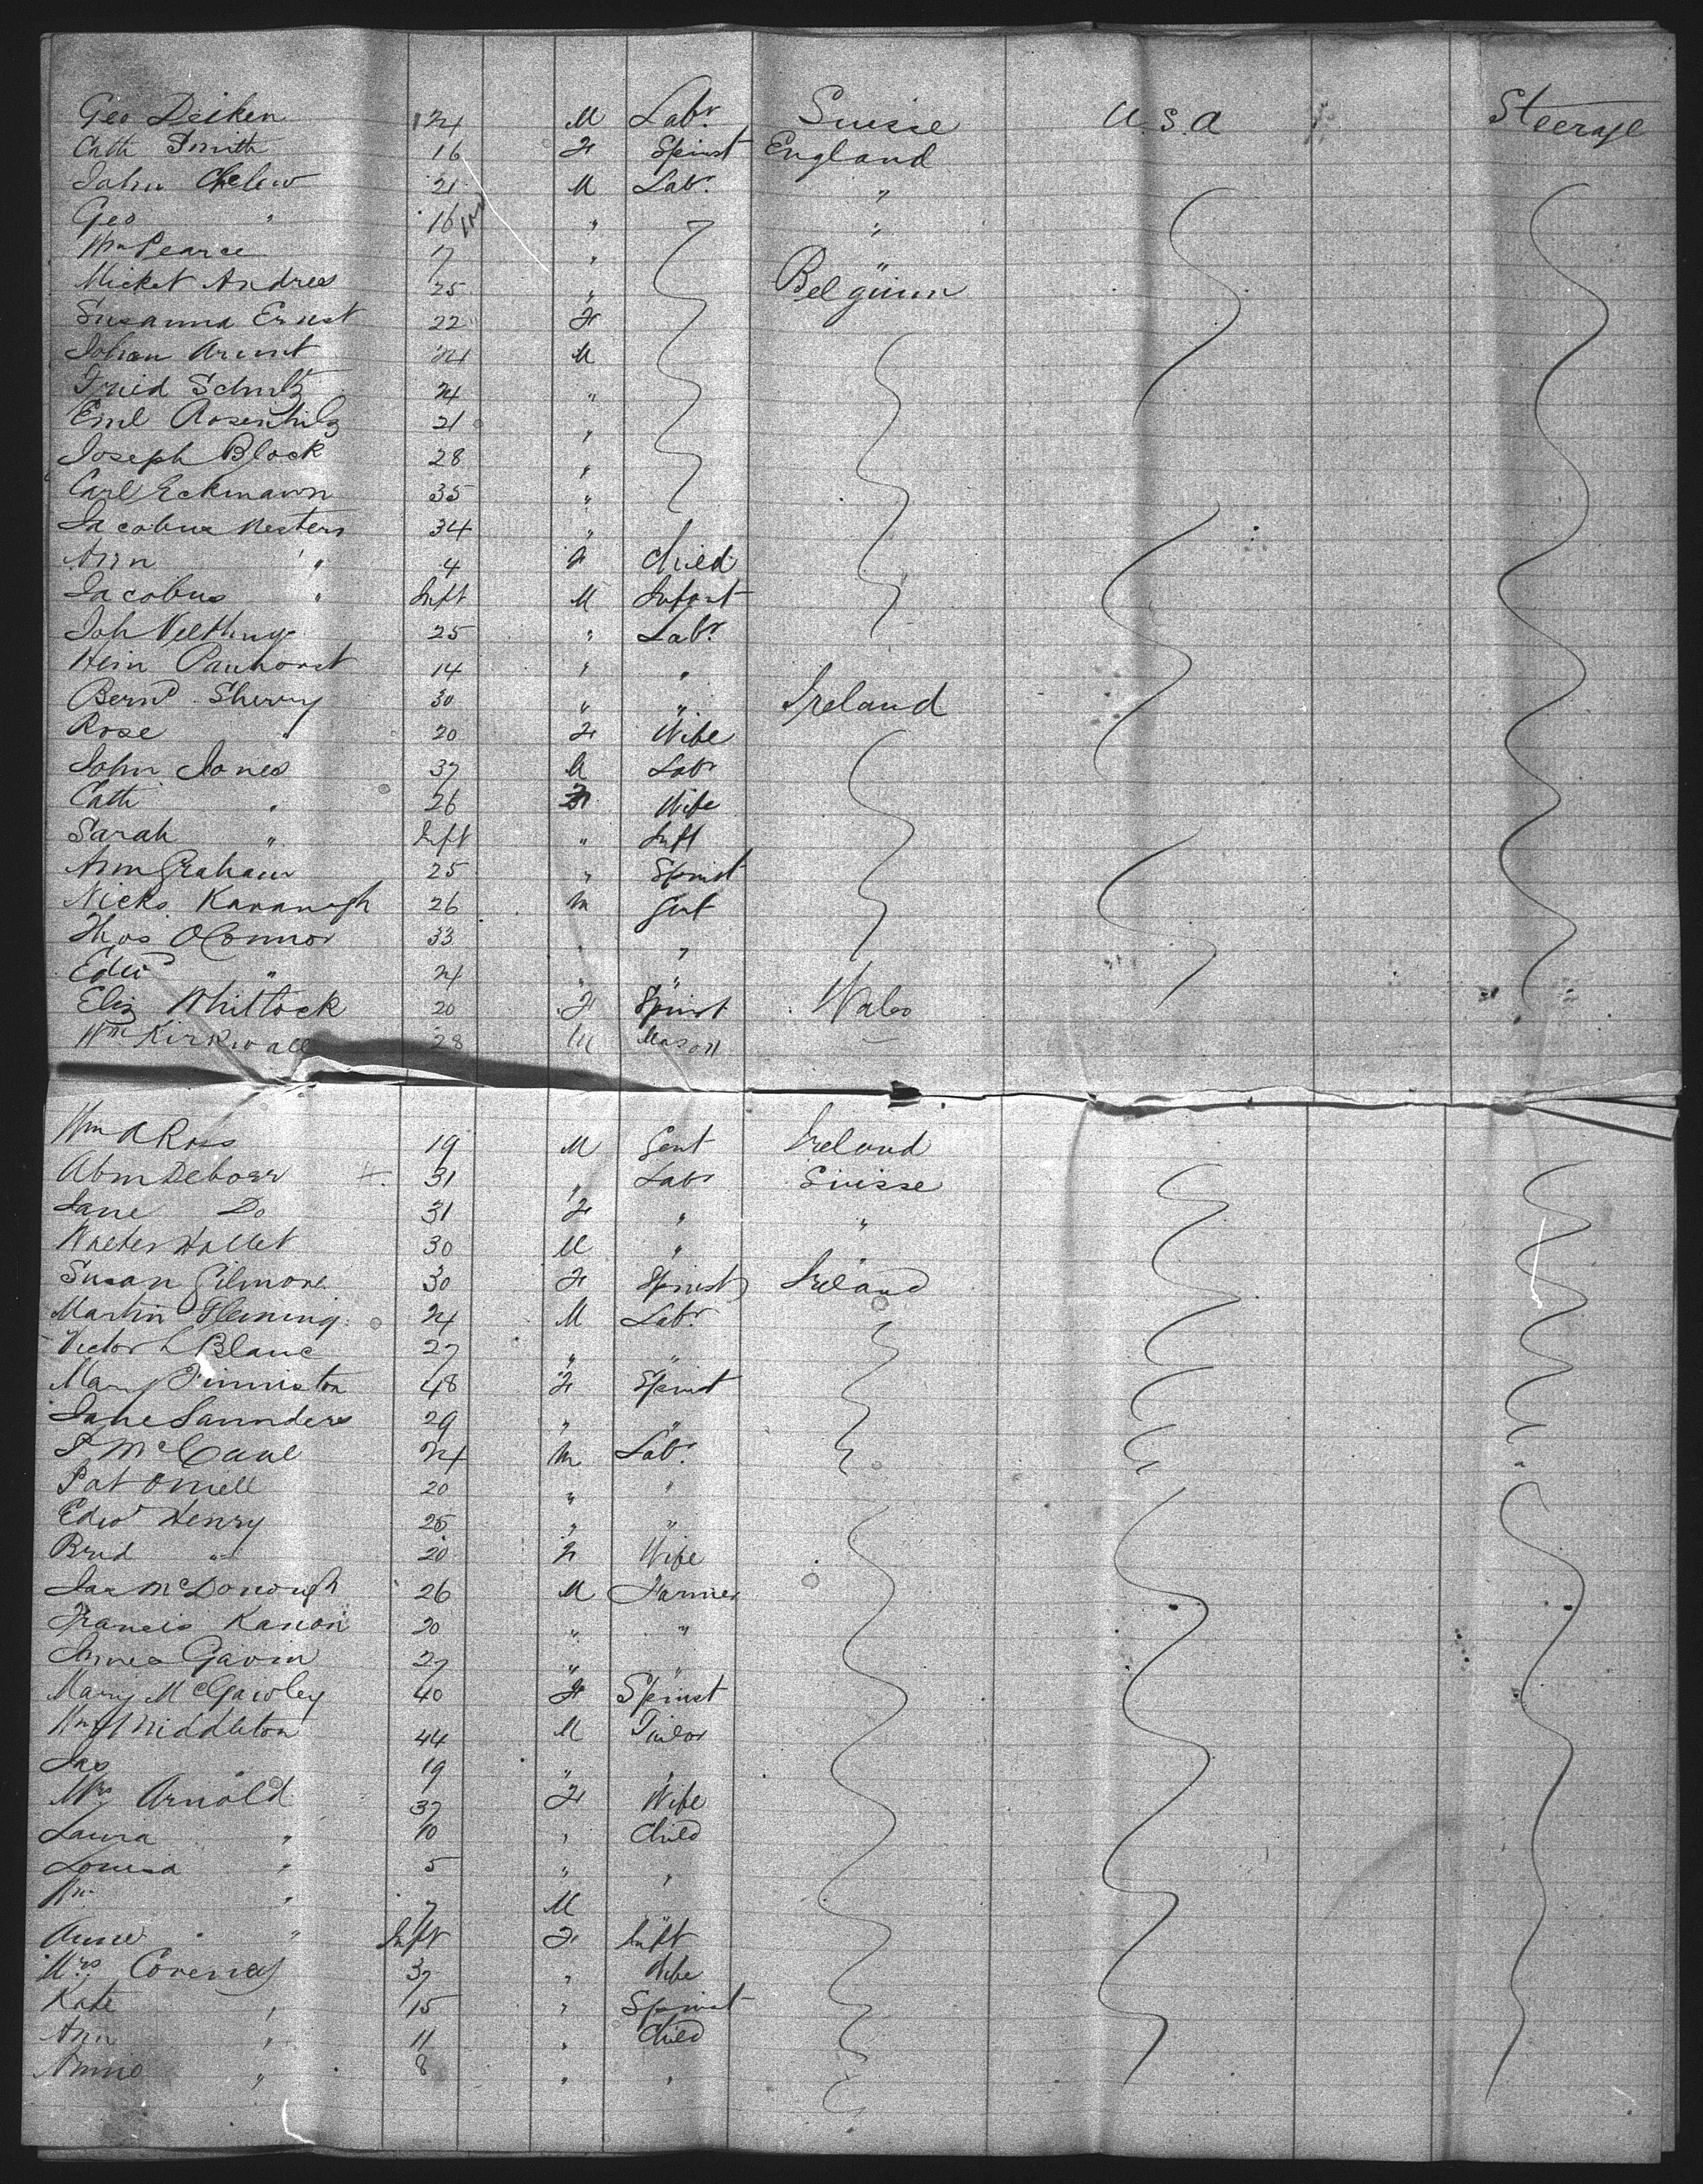 Geo Deiken 24 M Labr. Suisse U.S.A Steerage
Cath Smith 16 F Spinst England
John Chelew 21 M Labr. "
Geo " 16 " "
Wm Pearce 7 " "
Andres 25 " Belguim
Susanna Ernst 22 F
Johan 24 M
Schultz 24 "
Emil 21 "
Joseph Block 28 "
Carl Eckmann 35 "
Jacobus Nesters 34 "
Ann " 4 F Child
Jacobus " Inft M Infant
Joh 25 " Labr.
Hein 14 " "
Bernd Sherry 30 " " Ireland
Rose " 20 F Wife
John Jones 37 M Labr
Cath " 26 F Wife
Sarah " Inft " Inft
Ann Graham 25 " Spinst
Nicks Kavanagh 26 M Gent
Thos OConnor 33 " "
Edwd " 24 " "
Eliz Whittock 20 F Spinst Wales
Wm Kirkwall 28 M Mason
Wm A Ross 19 M Gent Ireland
Abm Deboer 31 " Labr Suisse
Jane Do 31 F " "
Walter Hallet 30 M "
Susan Gilmore 30 F Spinst Ireland
Martin Fleming 24 M Labr.
Victor L Blanc 27 " "
Mary Finniston 48 F Spinst
Jane Saunders 29 " "
P McCaul 24 M Labr.
Pat ONiell 20 " "
Edwd Henry 25 " "
Brid " 20 F Wife
Jas McDonough 26 M Farmer
Francis 20 " "
James Gavin 27 " "
Mary McGawley 40 F Spinst
Wm Middleton 44 M Tailor
Jas " 19 " "
Mrs Arnold 37 F Wife
Laura " 10 " Child
Louisa " 5 " "
Wm " 7 M
Anne " Inft F Inft
Mrs 37 " Wife
Kate " 15 " Spinst
Ann " 11 " Child
" 8 " "